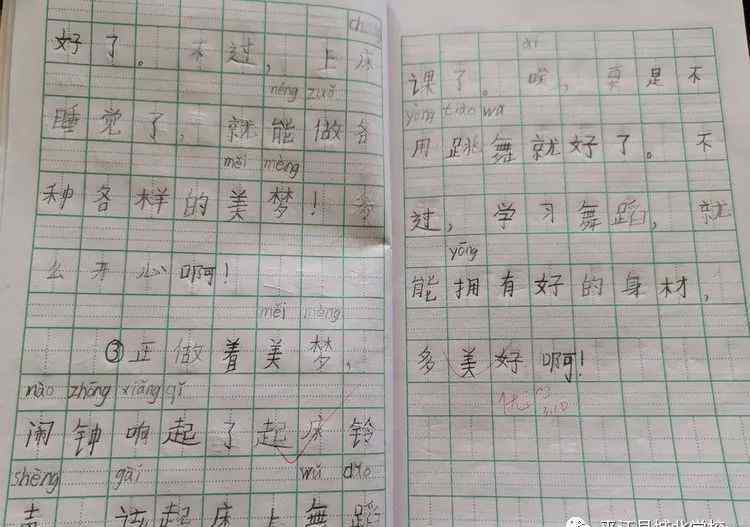 chuáng
好了。不过，上床
néng zuò
睡觉了，就能做各
měi mèng
种各样的美梦！多
么开心啊！
měi mèng
③正做着美梦，
nào zhōng xiǎng qǐ
闹钟响起了起床铃
shēng gāi wǔ dǎo
声，该起床上舞蹈
āi
课了。唉，要是不
yòng tiào wǔ
用跳舞就好了。不
过，学习舞蹈，就
yōng
能拥有好的身材，
多美好啊！
优
平江县城北学校